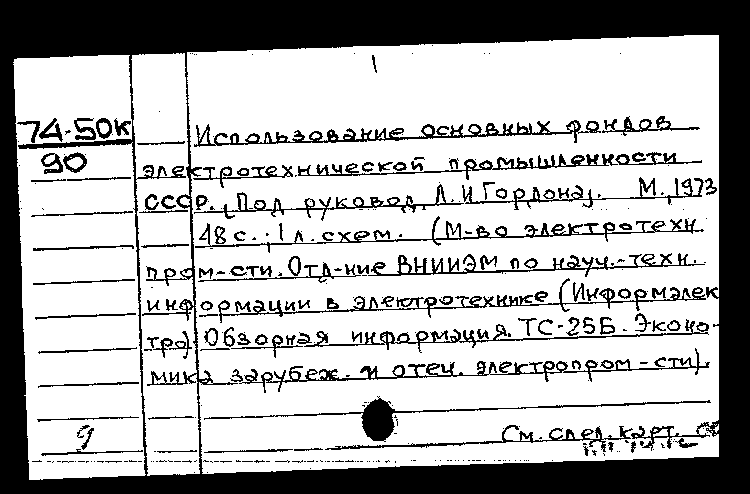 74-50к
90
Использование основных фондов
электротехнической промышленности
СССР. [Под руковод. Л.И Гордона]. М., 1973
48 с.; 1 л. схем. (М-во электротехн.
пром-сти. Отд-ние ВНИИЭМ по науч.-техн.
информации в электротехнике (Информэлек
тро). Обзорная информация. ТС-25Б. Эконо-
мика зарубеж. и отеч. электропром-сти).
9
См. след. карт.